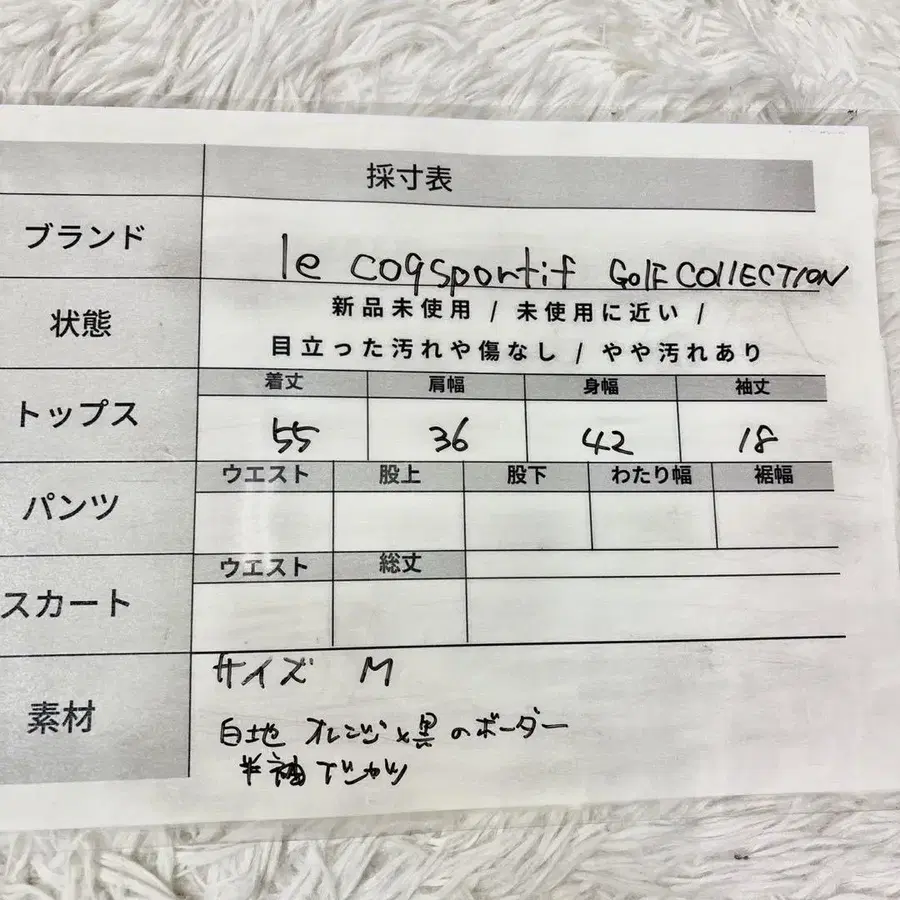 採寸表
ブランド
le coqsportif GOLF COLLECTION
状態
新品未使用 / 未使用に近い /
目立った汚れや傷なし / やや汚れあり
トップス
着丈 肩幅 身幅 袖丈
55 36 42 18
パンツ
ウエスト 股上 股下 わたり幅 裾幅
スカート
ウエスト 総丈
素材
サイズ M
白地 オレンジと黒のボーダー
半袖Tシャツ